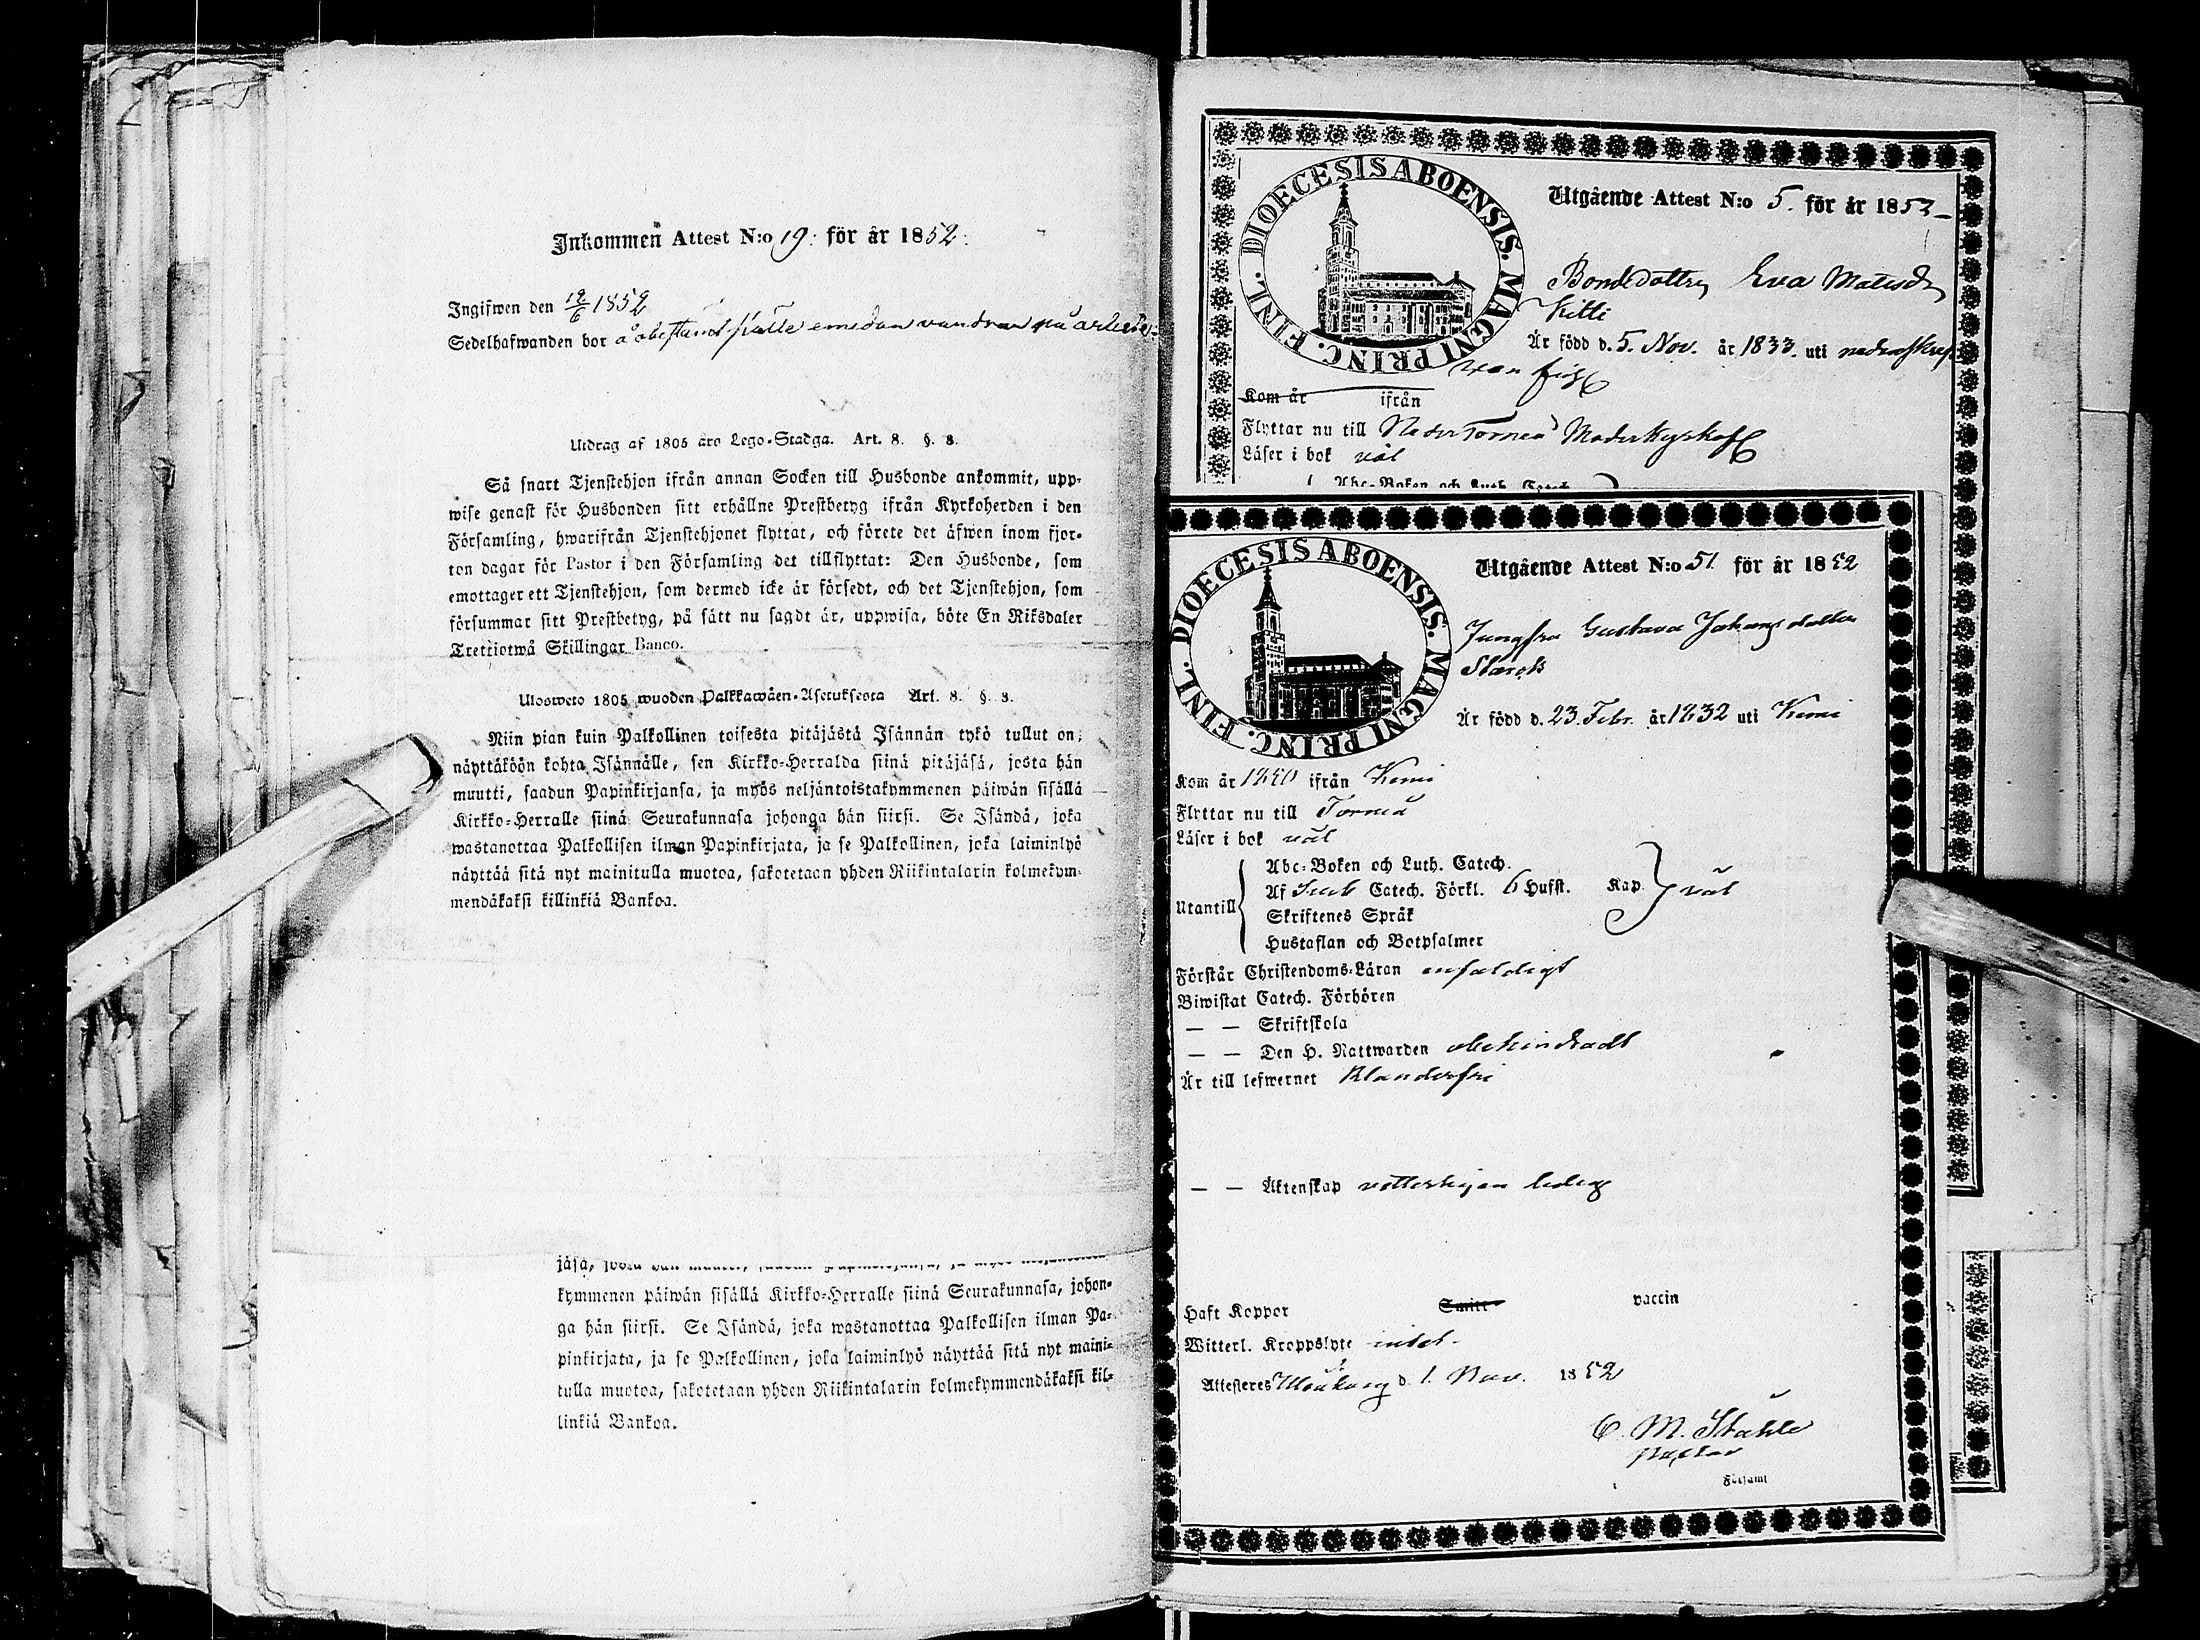 Inkommen Attest N:o 19. för år 1852.
Ingifwen den 12/6 1852
Sedelhafwanden bor å obestämdt ställe emedan vandrar på arbete.
Utdrag af 1805 års Lego-Stadga. Art. 8. §. 8.
Så snart Tjenstehjon ifrån annan Socken till Husbonde ankommit, upp-
wise genast för Husbonden sitt erhållne Prestbetyg ifrån Kyrkoherden i den
Församling, hwarifrån Tjenstehjonet flyttat, och förete det äfwen inom fjor-
ton dagar för Pastor i den Församling det tillflyttat: Den Husbonde, som
emottager ett Tjenstehjon, som dermed icke är försedt, och det Tjenstehjon, som
försummar sitt Prestbetyg, på sätt nu sagdt är, uppwisa, böte En Riksdaler
Trettiotwå Skillingar Banco.
Ulosweto 1805 wuoden Palkkawäen-Asetuksesta Art. 8. §. 8.
Niin pian kuin Palkollinen toisesta pitäjästä Isännän tykö tullut on,
näyttäköön kohta Isännälle, sen Kirkko-Herralda siinä pitäjäsä, josta hän
muutti, saadun Papinkirjansa, ja myös neljäntoistakymmenen päiwän sisällä
Kirkko-Herralle siinä Seurakunnasa johonga hän siirsi. Se Isändä, joka
wastanottaa Palkollisen ilman Papinkirjata, ja se Palkollinen, joka laiminlyö
näyttää sitä nyt mainitulla muotoa, sakotetaan yhden Riikintalarin kolmekym-
mendäkaksi killinkiä Bankoa.
kymmenen päiwän sisällä Kirkko-Herralle siinä Seurakunnasa, johon-
ga hän siirsi. Se Isändä, joka wastanottaa Palkollisen ilman Pa-
pinkirjata, ja se Palkollinen, joka laiminlyö näyttää sitä nyt maini-
tulla muotoa, sakotetaan yhden Riikintalarin kolmekymmendäkaksi kil-
linkiä Bankoa.
DIOECESIS ABOENSIS. MAGNI PRINC. FINL.
Utgående Attest N:o 5. för år 1852
Bondedottren Eva Matsdr
Kitti
Är född d. 5. Nov. år 1833. uti
Kom år ifrån
Flyttar nu till Neder Torneå Moderkyrka
Läser i bok väl
Abc-Boken och Luth. Catech.
DIOECESIS ABOENSIS. MAGNI PRINC. FINL.
Utgående Attest N:o 51 för år 1852
Jungfru Gustava Johansdotter
Är född d. 23. Febr. år 1832 uti Kemi
Kom år 1850 ifrån Kemi
Flyttar nu till Torneå
Läser i bok väl
Utantill
Abc-Boken och Luth. Catech.
Af Catech. Förkl. 6 Hufst. Kap. väl
Skriftenes Språk
Hustaflan och Botpsalmer
Förstår Christendoms-Läran enfaldigt
Biwistat Catech. Förhören
— — Skriftskola
— — Den H. Nattwarden obehindradt
Är till lefwernet klanderfri
— — Äktenskap vetterligen ledig
Haft Koppor Smitt vaccin
Witterl. Kroppslyte intet
Attesteres Uleåborg d. 1. Nov. 1852
C. M. Ståhle
Pastor
Församl